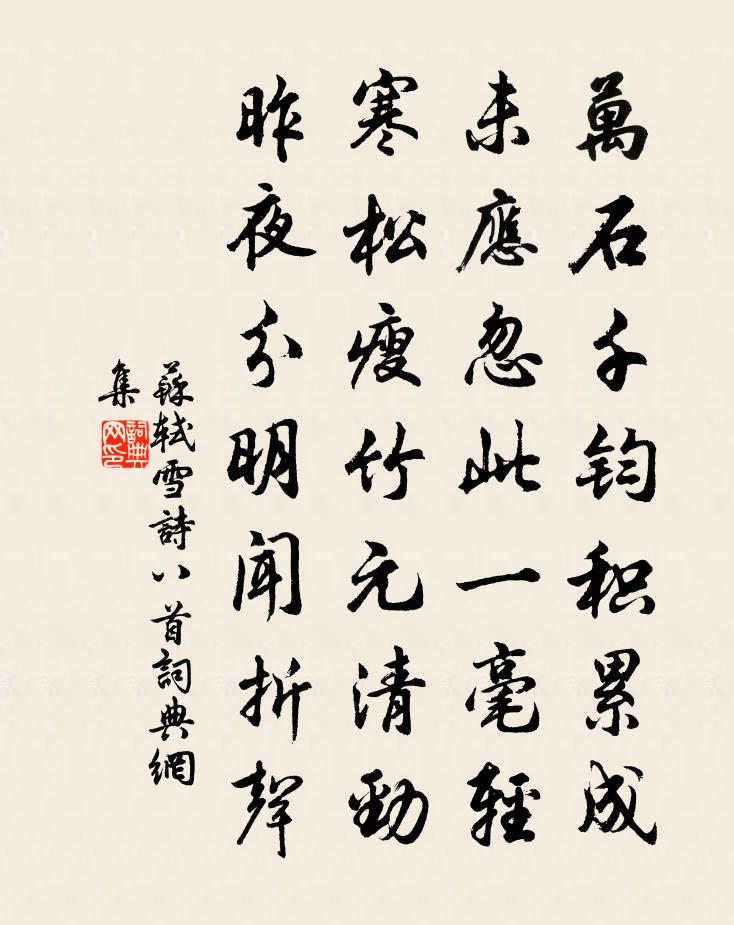 萬石千鈞积累成
未應忽此一毫輕
寒松瘦竹元清勁
昨夜分明聞折聲
蘇軾雪詩八首詞典網
集
詞典
网印